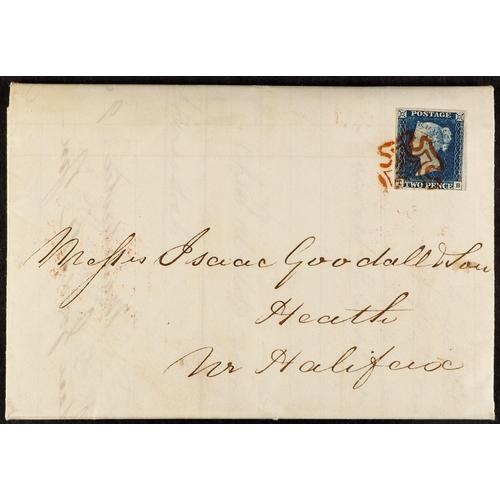 POSTAGE
TWO PENCE B
Messrs Isaac Goodall & Son
Heath
Nr Halifax